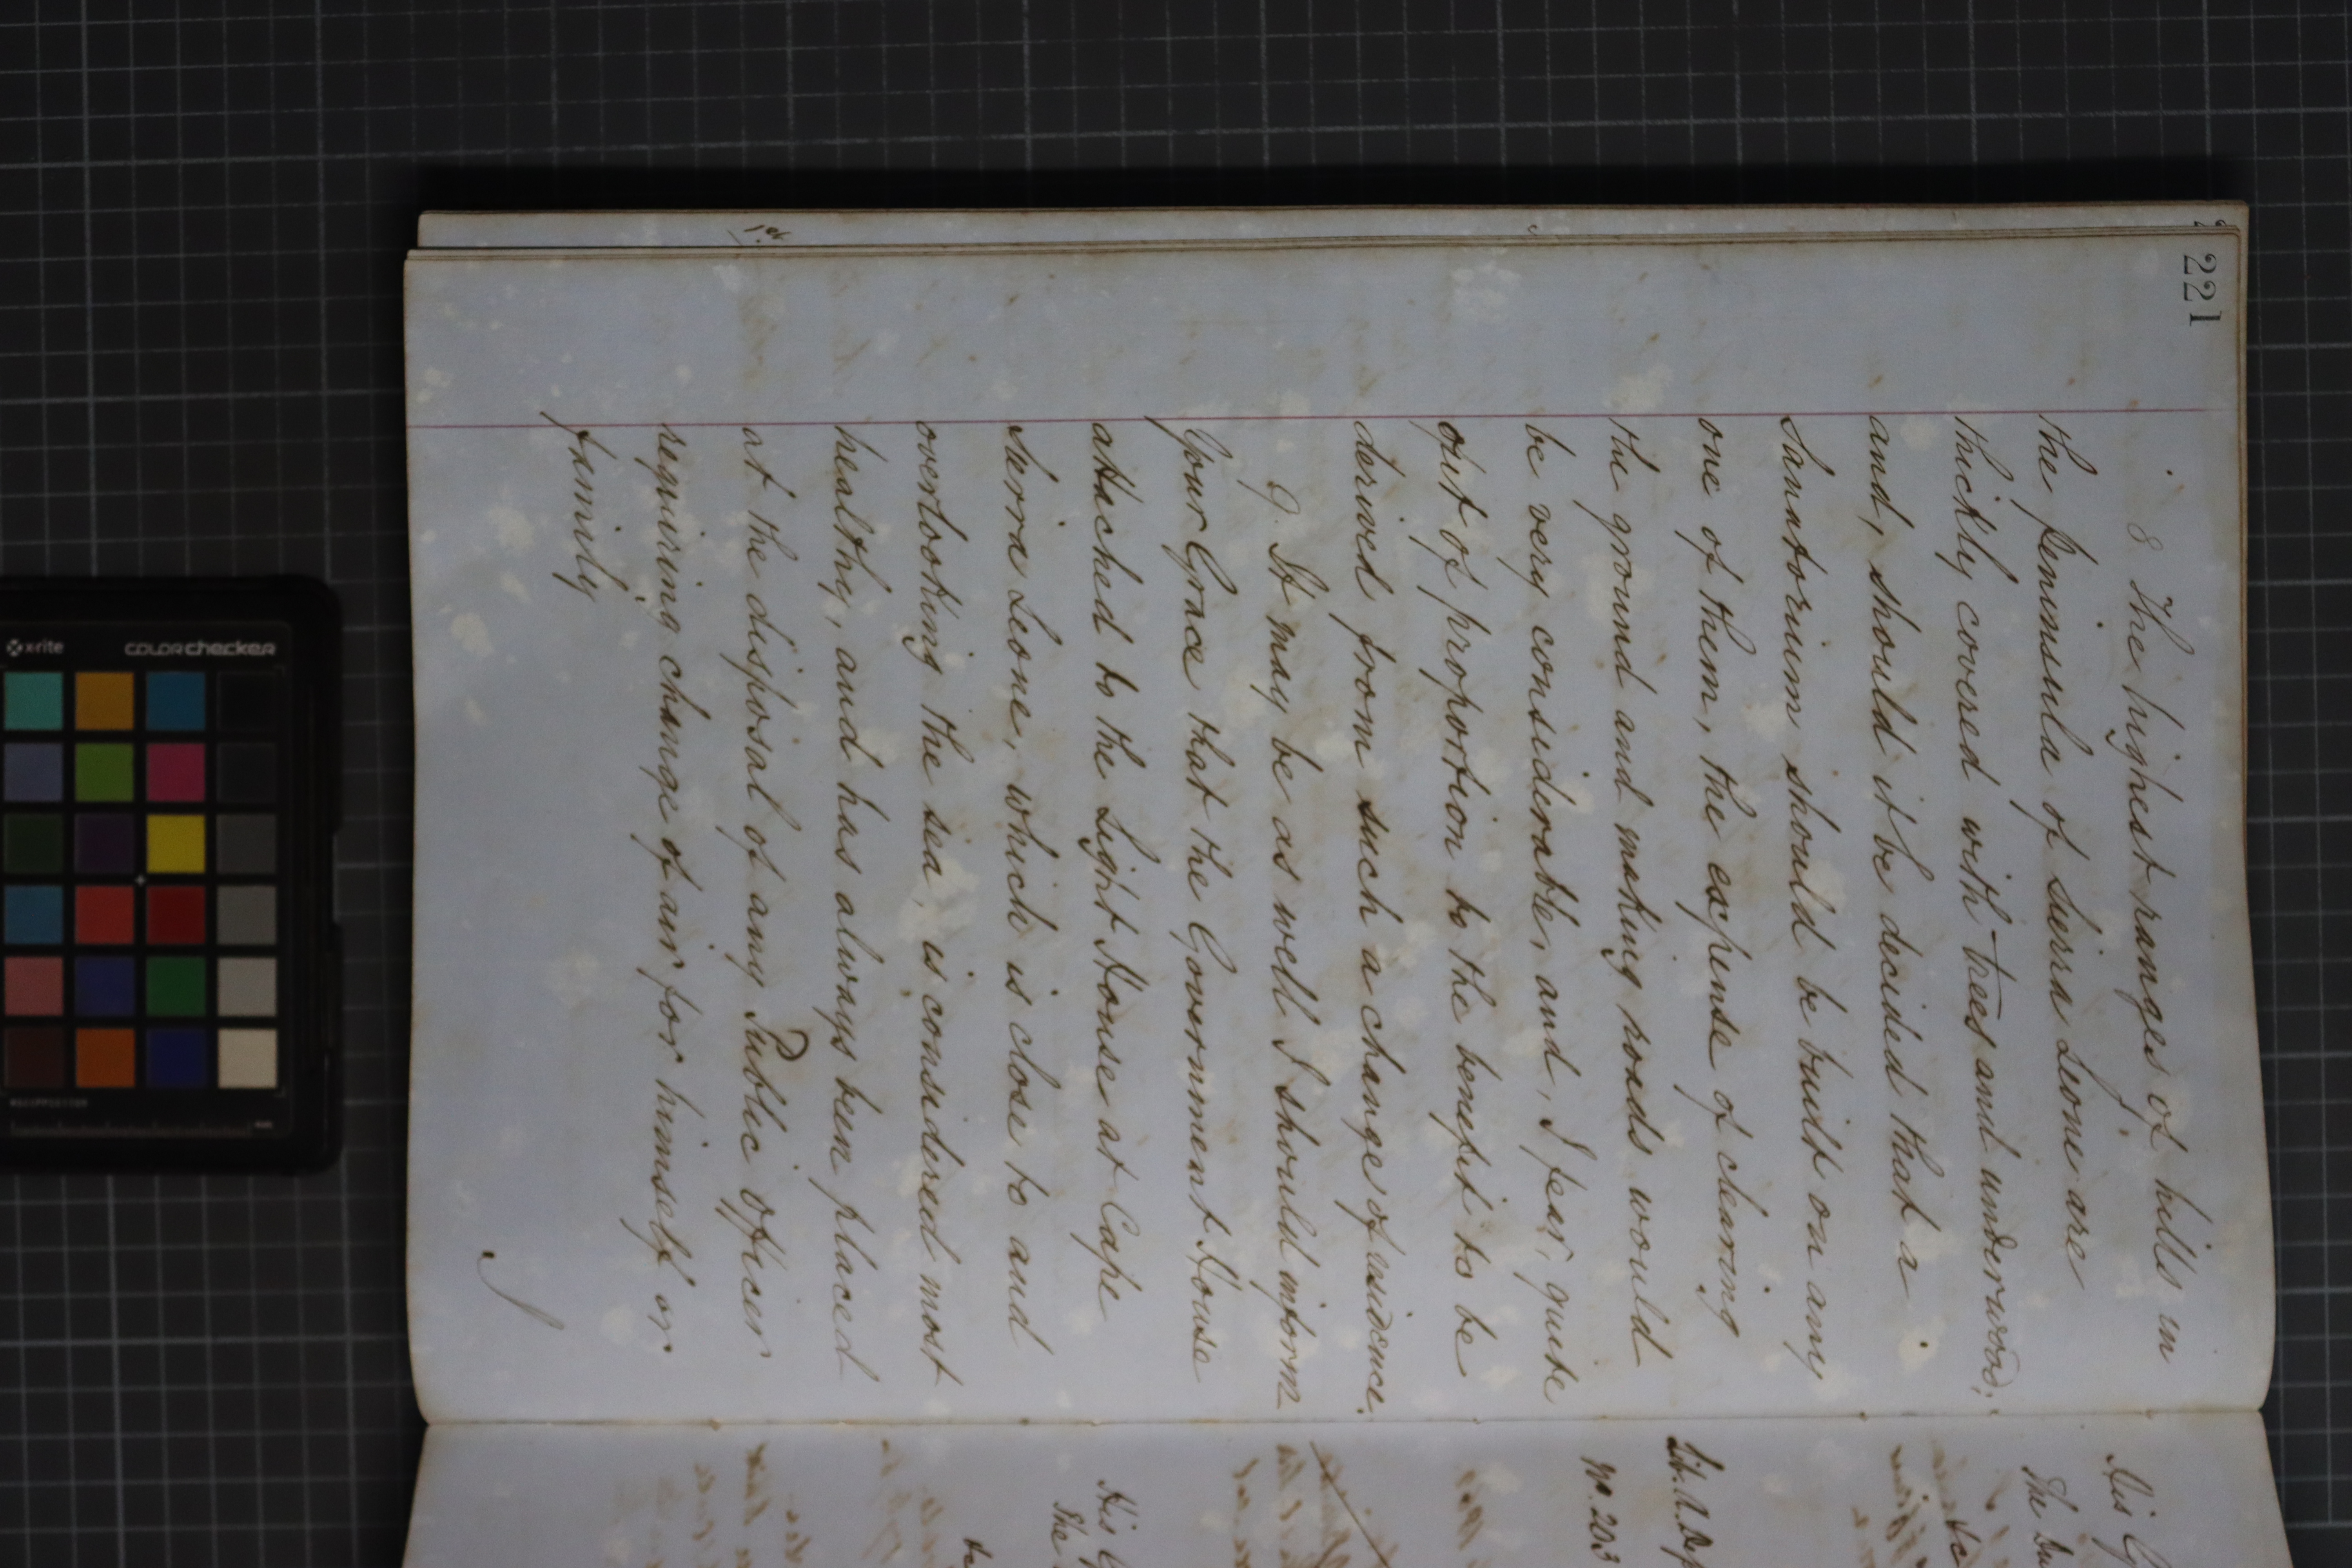 221
8 The highest ranges of hills in
the peninsula of Sierra Leone are
thickly covered with trees and underwood;
and, should it be decided that a
Sanatorium should be built on any
one of them, the expense of clearing
the ground and making roads would
be very considerable, and, I fear, quite
out of proportion to the benefit to be
derived from such a change of residence.
9. It may be as well I should inform
Your Grace that the Government House
attached to the Light House at Cape
Sierra Leone, which is close to and
overlooking the sea, is considered most
healthy, and has always been placed
at the disposal of any Public Officer
requiring change of air for himself or
family
1st
His
The
No. 203
His
The
x-rite
colorchecker